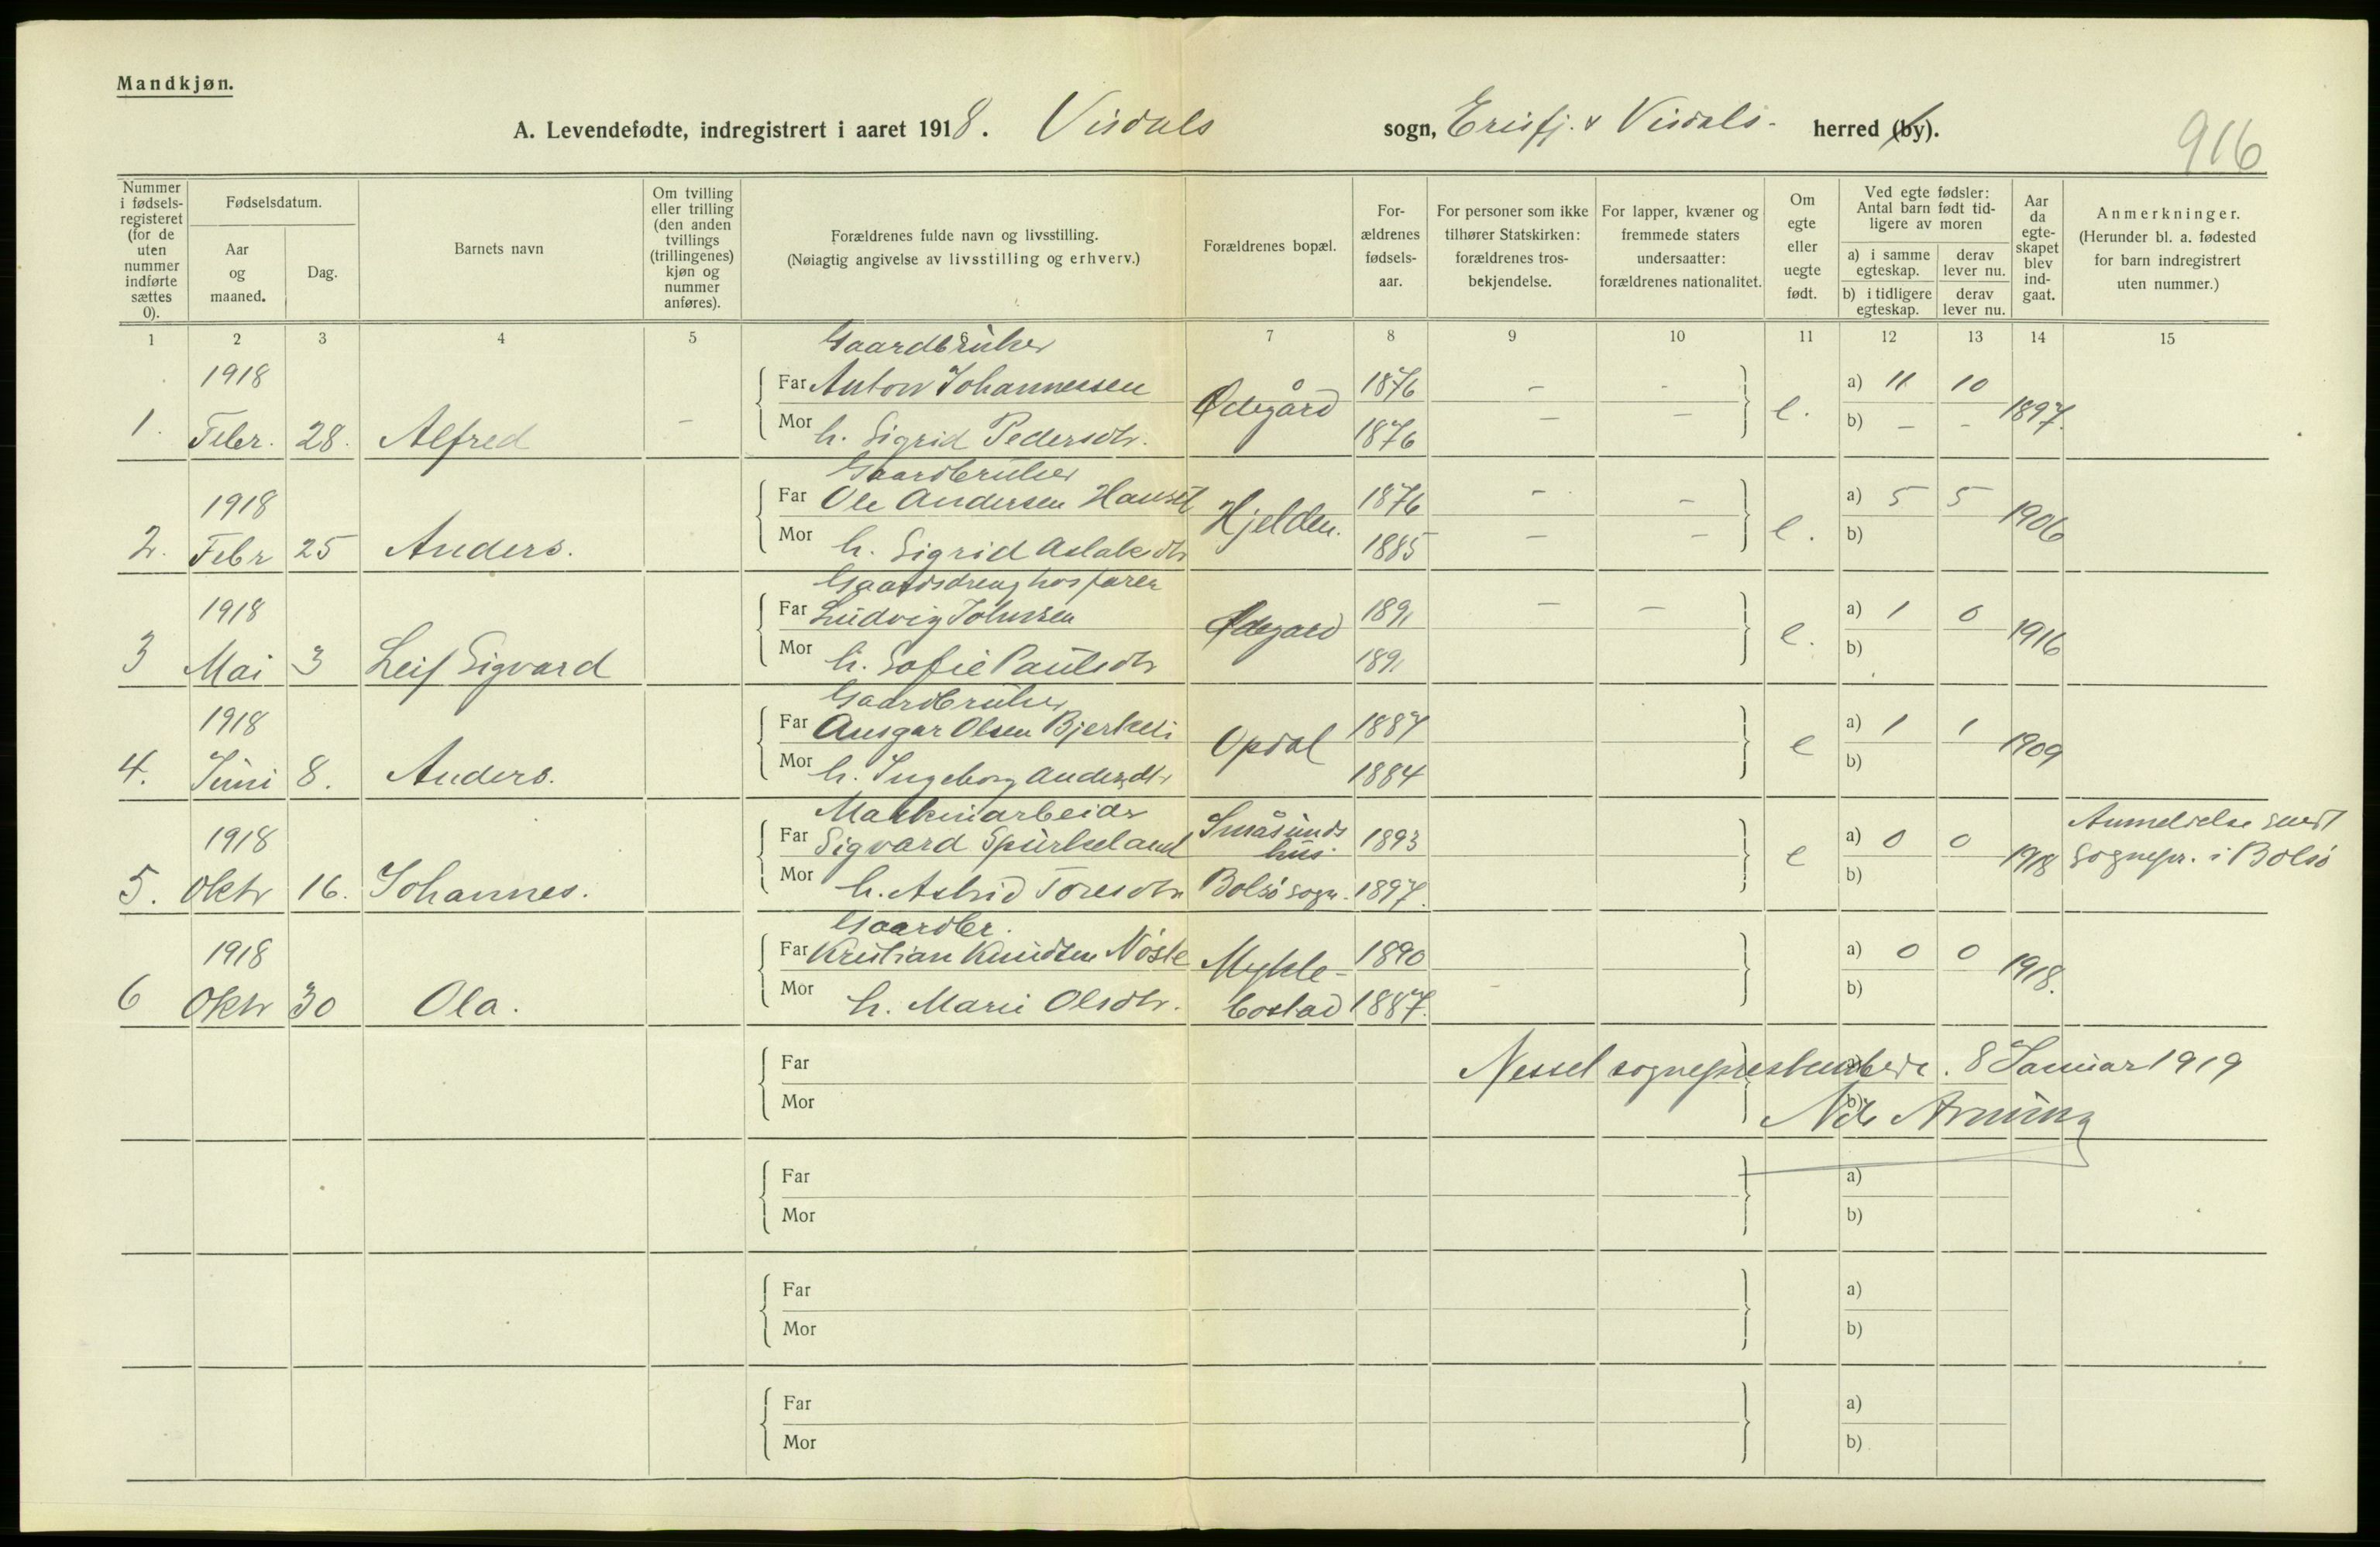 Mandkjøn.
A. Levendefødte, indregistrert i aaret 1918. Visdals sogn, Erisfj. & Visdals herred (by).
916
Nummer i fødsels-registeret (for de uten nummer indførte sættes 0).
Fødselsdatum.
Aar og maaned.
Dag.
Barnets navn
Om tvilling eller trilling (den anden tvillings (trillingenes) kjøn og nummer anføres).
Forældrenes fulde navn og livsstilling.
(Nøiagtig angivelse av livsstilling og erhverv.)
Forældrenes bopæl.
For-ældrenes fødsels-aar.
For personer som ikke tilhører Statskirken: forældrenes tros-bekjendelse.
For lapper, kvæner og fremmede staters undersaatter: forældrenes nationalitet.
Om egte eller uegte født.
Ved egte fødsler: Antal barn født tid-ligere av moren
a) i samme egteskap.
derav lever nu.
b) i tidligere egteskap.
derav lever nu.
Aar da egte-skapet blev ind-gaat.
Anmerkninger.
(Herunder bl. a. fødested for barn indregistrert uten nummer.)
1 2 3 4 5 7 8 9 10 11 12 13 14 15
Gaardbruker
1918 Far Anton Johannessen 1876 - - a) 11 10
1. Febr. 28. Alfred - Mor h. Sigrid Pedersdtr. Ødegård 1876 - - e. b) - - 1897.
Gaardbruker
1918 Far Ole Andersen Hauset 1876 - - a) 5 5
2. Febr 25 Anders. Mor h. Sigrid Aslaksdtr Hjelden. 1885 - - e. b) 1906
Gaardsdreng hos faren
1918 Far Ludvig Johnsen 1891 - - a) 1 0
3 Mai 3 Leif Sigvard Mor h. Sofie Paulsdtr Ødegard 1891 e. b) 1916
Gaardbruker
1918 Far Ansgar Olsen Bjerkeli 1887 a) 1 1
4. Juni 8. Anders. Mor h. Ingeborg Andersdtr Opdal 1884 e b) 1909
Maskinarbeider
1918 Far Sigvard Spurkeland Småsunds hus. 1893 a) 0 0 Anmeldelse sendt
5. Oktr 16. Johannes. Mor h. Astrid Toresdtr Bolsø sogn. 1897. e b) 1918 Sognepr. i Bolsø
Gaardbr.
1918 Far Kristian Knudsen Nøste Mykle- 1890 a) 0 0
6 Oktr 30 Ola. Mor h. Marie Olsdtr. bostad 1887. b) 1918.
Far
Nesset sogneprestembede. 8 Januar 1919
Mor b)
Far a)
Mor b)
Far a)
Mor b)
Far a)
Mor b)